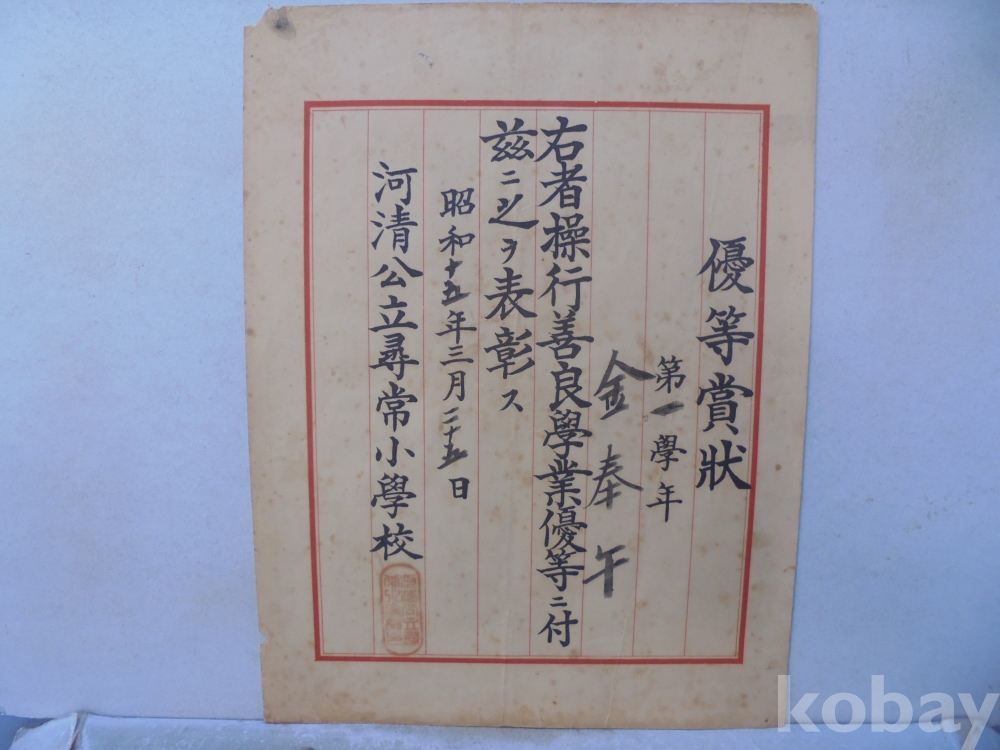 優等賞狀
第一學年
金奉午
右者操行善良學業優等ニ付
茲ニ之ヲ表彰ス
昭和十五年三月二十五日
河清公立尋常小學校
kobay